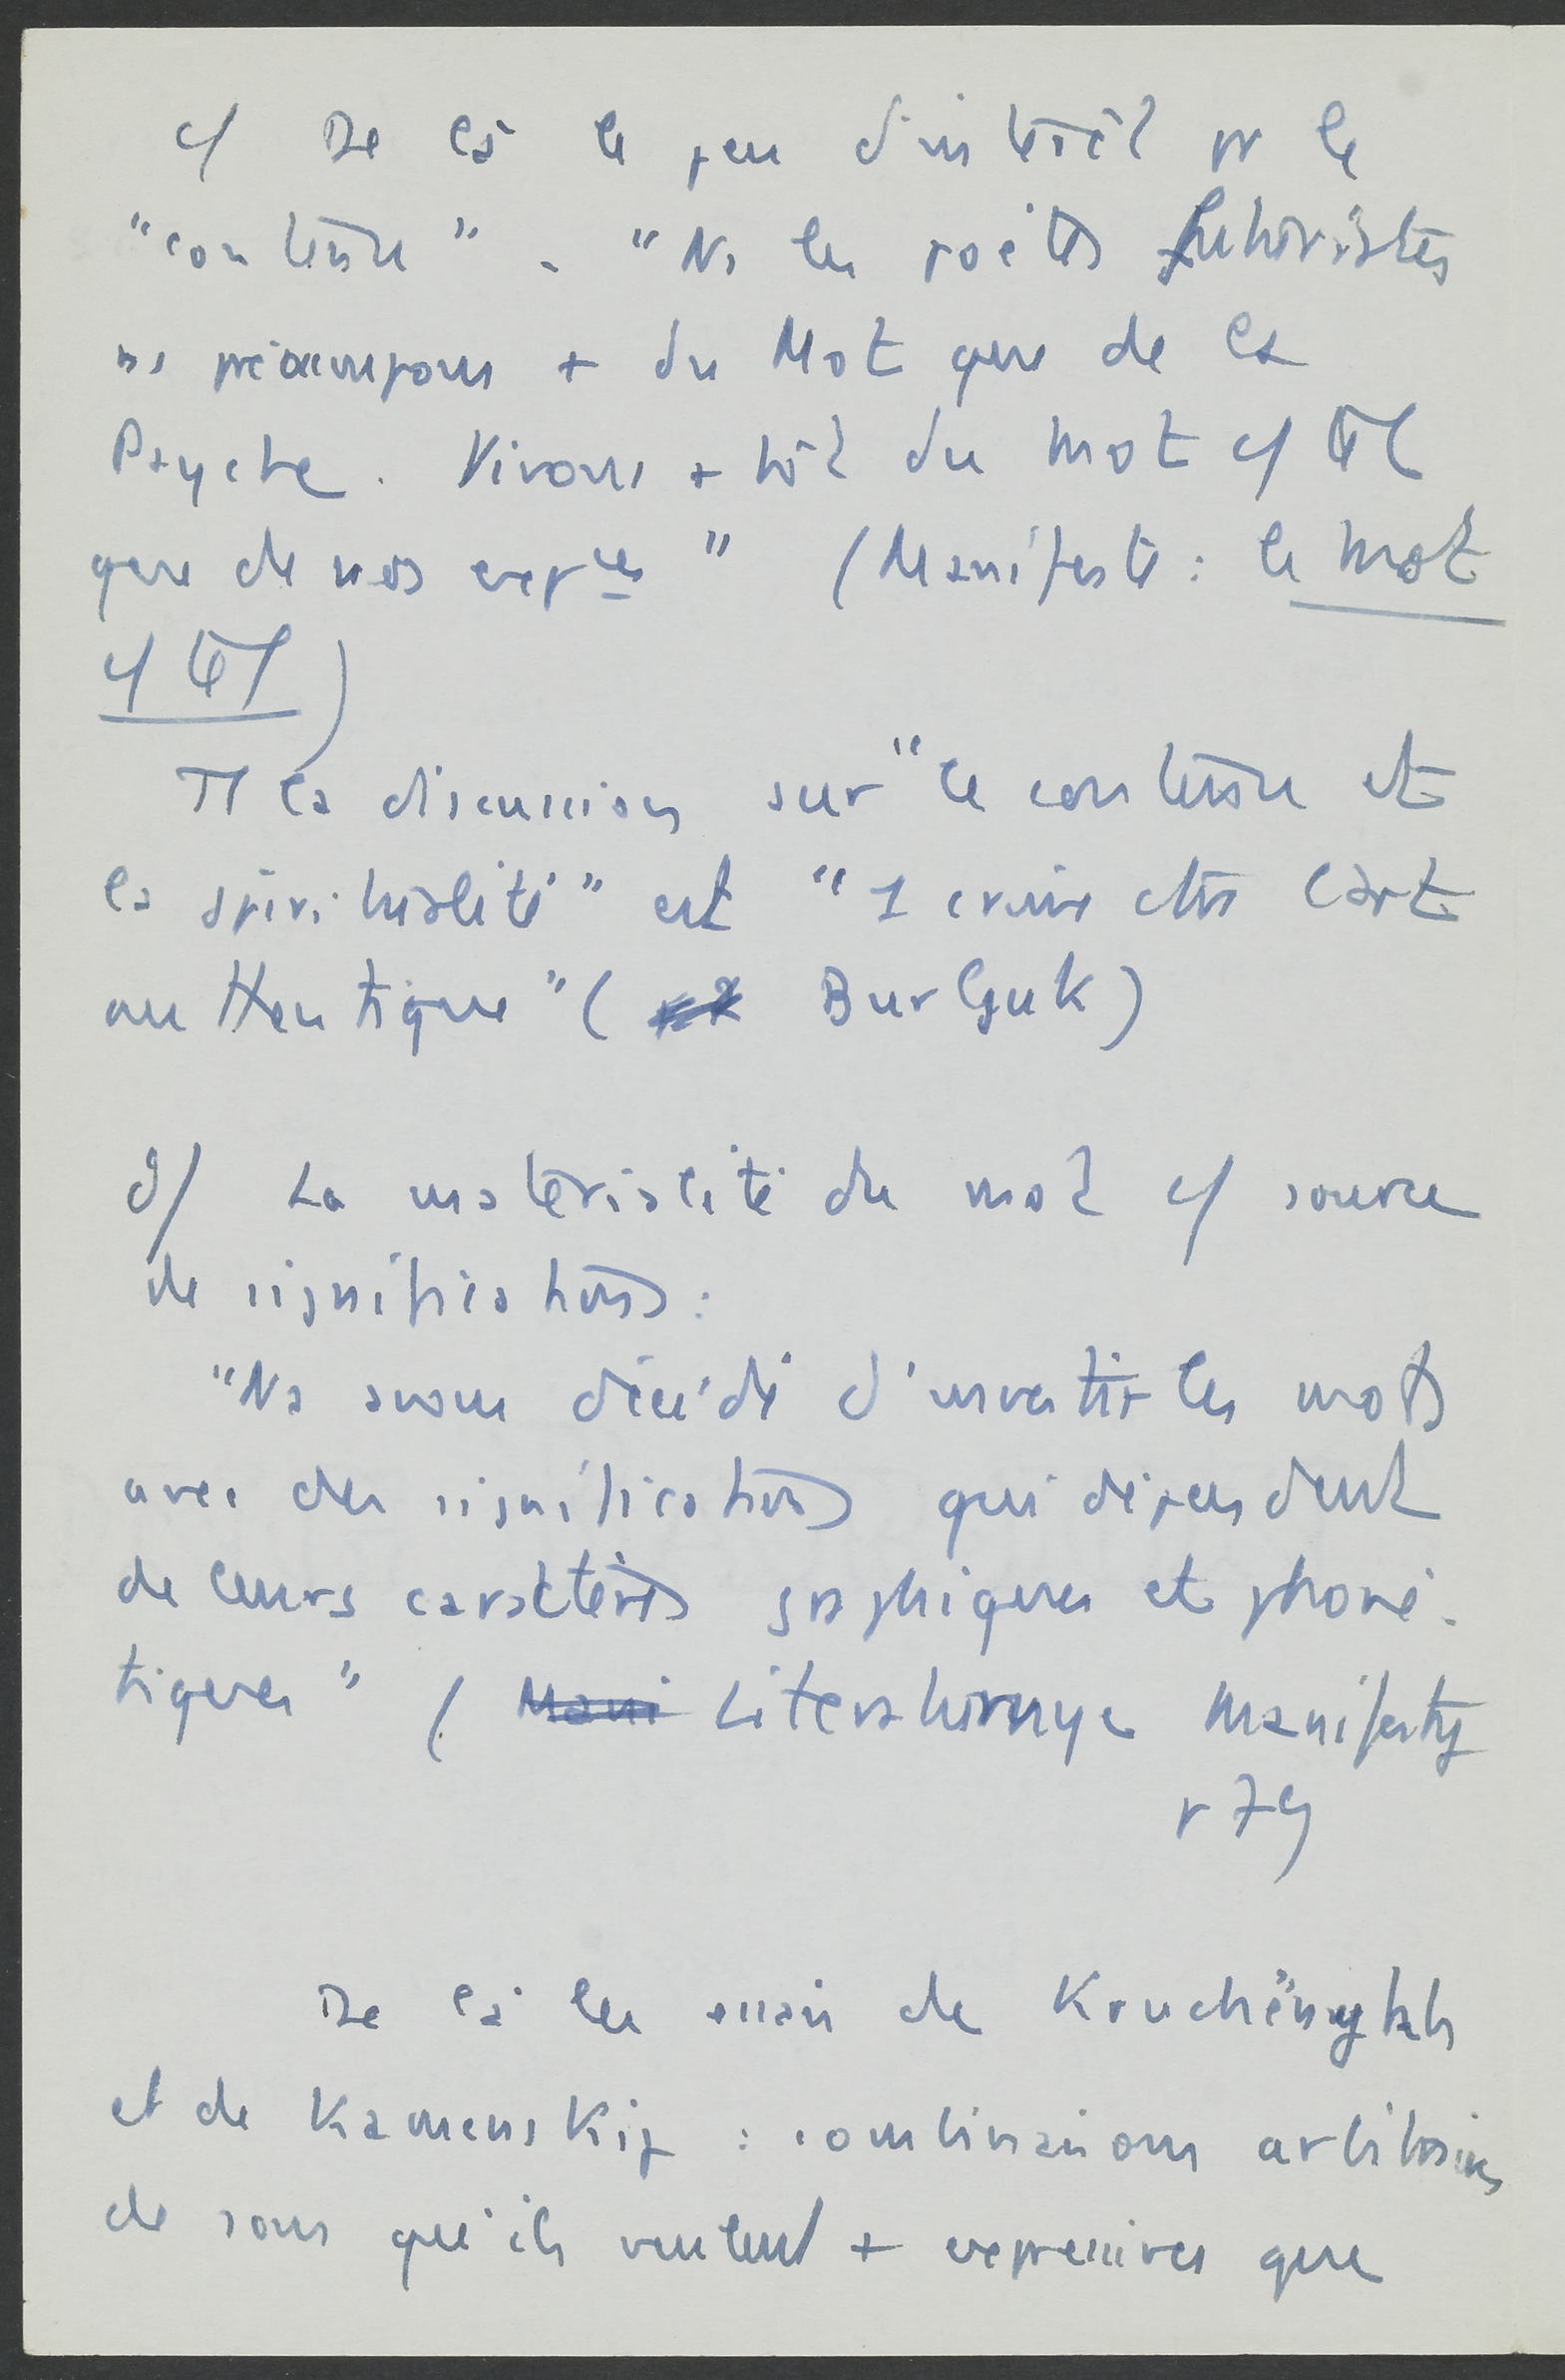 c/ De là le peu d'intérêt pr le
"contenu". "Ns les poètes futuristes
ns préoccupons + du Mot que de la
Psyche. Vivons + tôt du mot c/ tel
que de nos expces" (Manifeste : le mot
c/ tel)
Tte la discussion sur "le contenu et
la spiritualité" est "1 crime ctre l'art
authentique" ( Burljuk)
d/ La matérialité du mot c/ source
de significations :
"Ns avons décidé d'investir les mots
avec des significations qui dépendent
de leurs caractères graphiques et phoné-
tiques" ( Mani Literaturnye Manifesty
p 79
De là les essais de Kruchënykh
et de Kamenskij : combinaisons arbitraires
de sons qu'ils veulent + expressives que